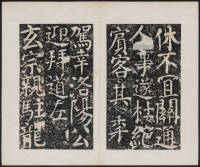 休不宜關通
人事遂杜絕
賓客其年
駕幸洛陽公
迎拜道左
玄宗親駐龍